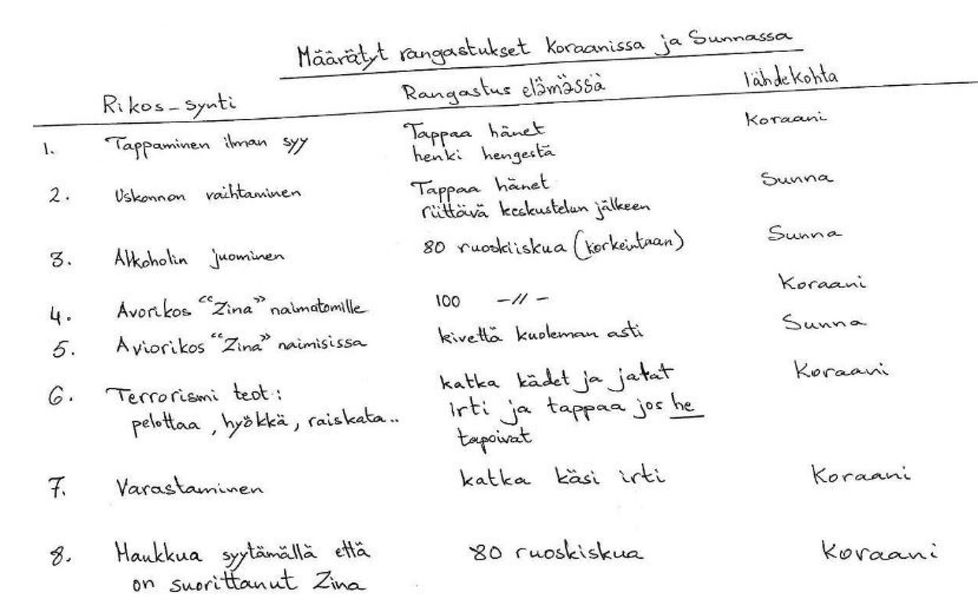 Määrätyt rangastukset Koraanissa ja Sunnassa
Rikos-synti Rangastus elämässä lähdekohta
1. Tappaminen ilman syy Tappaa hänet Koraani
henki hengestä
2. Uskonnon vaihtaminen Tappaa hänet Sunna
riittävä keskustelun jälkeen
3. Alkoholin juominen 80 ruoskiiskua (korkeintaan) Sunna
4. Avorikos "Zina" naimatomille 100 -//- Koraani
5. Aviorikos "Zina" naimisissa kivettä kuoleman asti Sunna
6. Terrorismi teot: katka kädet ja jatat Koraani
pelottaa, hyökkä, raiskata.. irti ja tappaa jos he
tapoivat
7. Varastaminen katka käsi irti Koraani
8. Haukkua syytämällä että 80 ruoskiskua Koraani
on suorittanut Zina